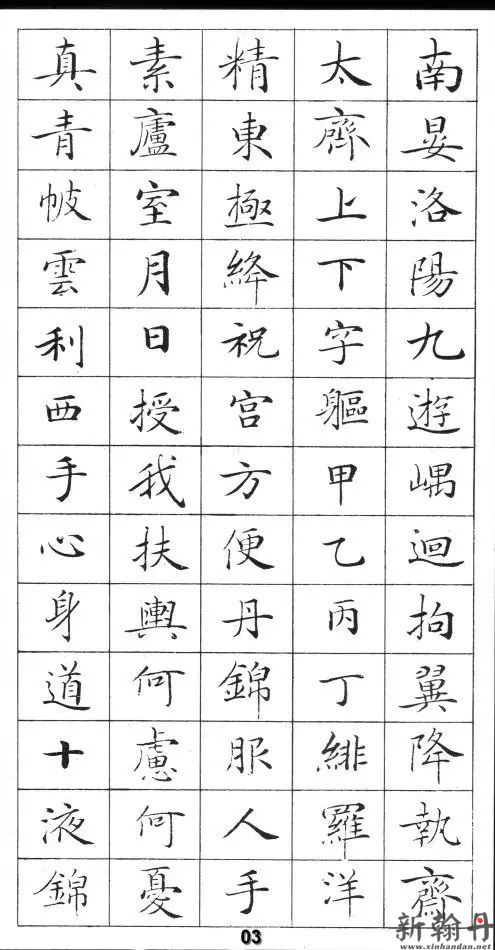 南晏洛陽九遊嵎迴拘翼降執齋
太齊上下字軀甲乙丙丁緋羅洋
精東極絳祝宮方便丹錦服人手
素廬室月日授我扶輿何慮何憂
真青帔雲利西手心身道十液錦
03
新翰丹
www.xinhandan.net